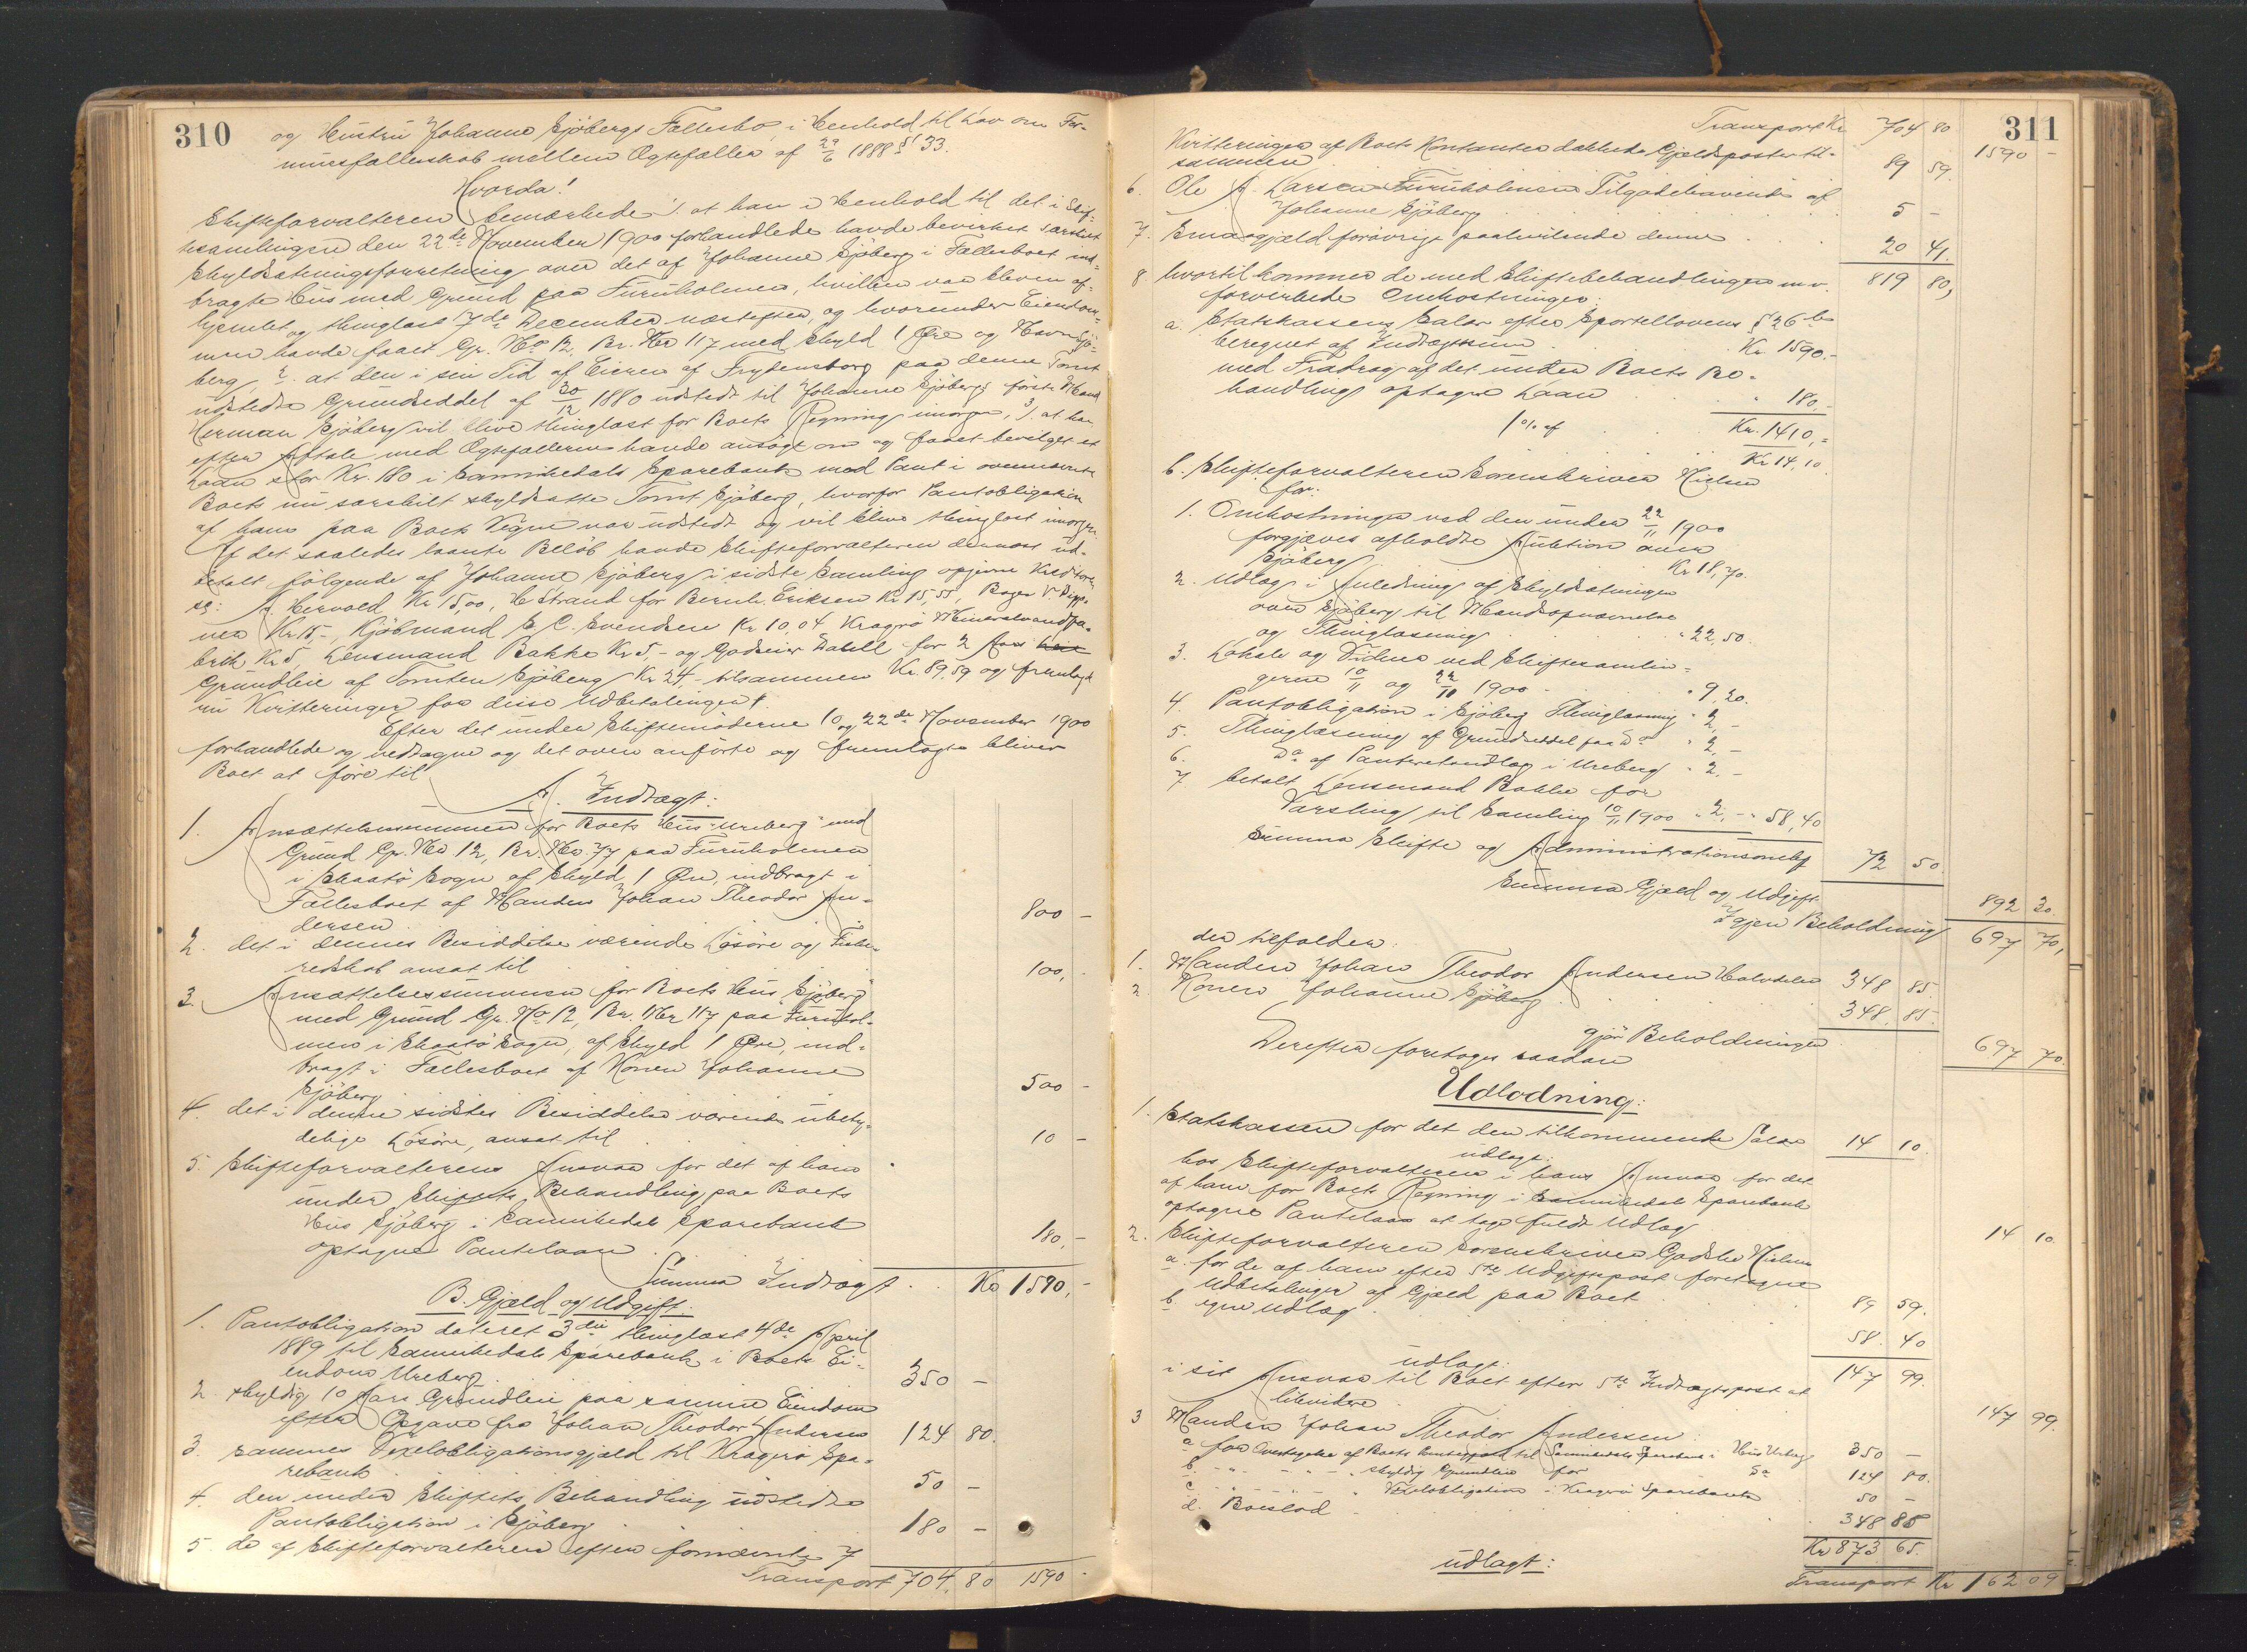 310
og Hustru Johanne Sjöbergs Fællesbo i Henhold til Lov om For-
muesfælleskab mellem Ægtefæller af 29/6 1888 § 33.
Hvorda!
Skifteforvalteren bemærkede 1. at han i Henhold til det i Skif-
tesamlingen den 22de November 1900 forhandlede havde bevirket særskilt
Skyldsætningsforretning over det af Johanne Sjöberg i Fællesboet ind-
bragte Hus med Grund paa Furuholmen, hvilken var bleven af-
hjemlet og thinglæst 7de December næstefter, og hvorunder Eiendom-
men havde faaet Gr. No 12, Br. No 117 med Skyld 1 Øre og Navn Sjö-
berg, 2. at den i sin Tid af Eieren af Frydensborg paa denne Tomt
udstedte Grundseddel af 30/12 1880 udstedt til Johanne Sjöbergs förste Mand
Herman Sjöberg vil blive thinglæst for Boets Regning imorgen, 3) at han
efter Aftale med Ægtefællerne havde ansögt om og faaet bevilget et
Laan stor Kr. 180 i Sannikedals Sparebank mod Pant i ovennævnte
Boets nu særskilt skyldsatte Tomt Sjöberg, hvorfor Pantobligation
af ham paa Boets Vegne var udstedt og vil blive thinglæst imorgen.
Af det saaledes laante Belöb havde Skifteforvalteren dernæst ud-
betalt fölgende af Johanne Sjöberg i sidste Samling opgivne Kreditorer
A. Hervold Kr 15,00, H Strand for Bernh. Eriksen Kr 15,55, Bager
Kr. 15 -, Kjöbmand S. C. Svendsen Kr 10,04 Kragerö Mineralvandfa-
brik Kr. 5, Lensmand Bakke Kr 5 - og Godseier Datell for 2 Aars
Grundleie af Tomten Sjöberg Kr 24,- tilsammen Kr. 89,59 og fremlagde
nu Kvitteringer for disse Udbetalinger.
Efter det under Skiftemöderne 10 og 22de November 1900
forhandlede og vedtagne og det oven anförte og fremlagte bliver
Boet at före til
A. Indtægt:
1. Ansættelsessummen for Boets Hus "Ureberg" med
Grund Gr. No 12, Br. No 77 paa Furuholmen
i Skaatö Sogn af Skyld 1 Øre, indbragt i
Fællesboet af Manden Johan Theodor An-
dersen 800 -
2. det i dennes Besiddelse værende Lösöre og Fiske-
redskab ansat til 100, -
3. Ansættelsessummen for Boets Hus "Sjöberg"
med Grund Gr. No 12, Br. No 117 paa Furuhol-
men i Skaatö Sogn, af Skyld 1 Øre, ind-
bragt i Fællesboet af Konen Johanne
Sjöberg 500 -
4. det i denne sidstes Besiddelse værende ubety-
delige Lösöre, ansat til 10 -
5. Skifteforvalterens Ansvar for det af ham
under Skiftets Behandling paa Boets
Hus Sjöberg i Sannikedals Sparebank
optagne Pantelaan 180, -
Summa Indtægt Kr 1590,-
B. Gjæld og Udgift.
1. Pantobligation dateret 3die thinglæst 4de April
1889 til Sannikedals Sparebank i Boets Ei-
endom Ureberg 350 -
2. skyldig 10 Aars Grundleie paa samme Eiendom
efter Opgave fra Johan Theodor Andersen 124 80.
3. sammes Vexelobligationsgjæld til Kragerö Spa-
rebank 50 -
4. den under Skiftets Behandling udstedte
Pantobligation i Sjöberg 180 -
5. de af Skifteforvalteren efter fornævnte 7
Transport 704, 80 1590 -
311
Transport Kr 704 80 1590 -
Kvitteringer af Boets Kontanter dækkede Gjældsposter til-
sammen 89 59.
6. Ole A. Larsen Furuholmens Tilgodehavende af
Johanne Sjöberg 5 -
7. Smaagjæld forövrigt paahvilende denne 20 41.
819 80,
8. hvortil kommer de med Skiftebehandlingen m.v.
forvirkede Omkostninger:
a. Statskassens Salær efter Sportellovens § 26 b
beregnet af Indtægtssum Kr. 1590.-
med Fradrag af det under Boets Be-
handling optagne Laan " 180,-
1% af Kr. 1410,-
Kr 14,10.
b. Skifteforvalteren Sorenskriver Nielsen
for:
1. Omkostninger ved den under 22/11 1900
forgjæves afholdte Auktion over
Sjöberg Kr 18,70.
2. Udlæg i Anledning af Skyldsætningen
over Sjöberg til Mandsopnævnelse
og Thinglæsning " 22,50.
3. Lokale og Vidner ved Skiftesamlin-
gerne 10/11 og 22/11 1900 " 9,20.
4. Pantobligation i Sjöberg Thinglæsning " 2,-
5. Thinglæsning af Grundseddel paa Do " 2,-
6. Do af Panteretsudlæg i Ureberg " 2,-
7 betalt Lensmand Bakke for
Varsling til Samling 10/11 1900 " 2,- " 58,40
Summa Skifte og Administrationsomk. 72 50.
Summa Gjæld og Udgift 892 30.
Igjen Beholdning 697 70,
der tilfalder:
1. Manden Johan Theodor Andersen Halvdelen 348 85.
2. Konen Johanne Sjöberg 348, 85.
gjör Beholdningen 697 70.
Derefter foretoges saadan
Udlodning:
1. Statskassen for det den tilkommende Salær 14 10.
udlagt:
hos Skifteforvalteren i hans Ansvar for det
af ham for Boets Regning i Sannikedals Sparebank
optagne Pantelaan at tage fuldt Udlæg 14 10.
2. Skifteforvalteren Sorenskriver Godske Nielsen
a. for de af ham efter 5te Udgiftspost foretagne
Udbetalinger af Gjæld paa Boet 89 59.
b. egne Udlæg 58. 40
147 99.
udlagt:
i sit Ansvar til Boet efter 5te Indtægtspost at
likvidere 147 99.
3 Manden Johan Theodor Andersen:
a for Overtagelse af Boets Pantegjæld til Sannikedals Sparebank i Hus Ureberg 350 -
b. " " " skyldig Grundleie for Do 124 80.
c. " " " Vexelobligation i Kragerö Sparebank 50 -
d. Boeslod 348 85
Kr 873 65.
udlagt:
Transport Kr 162 09